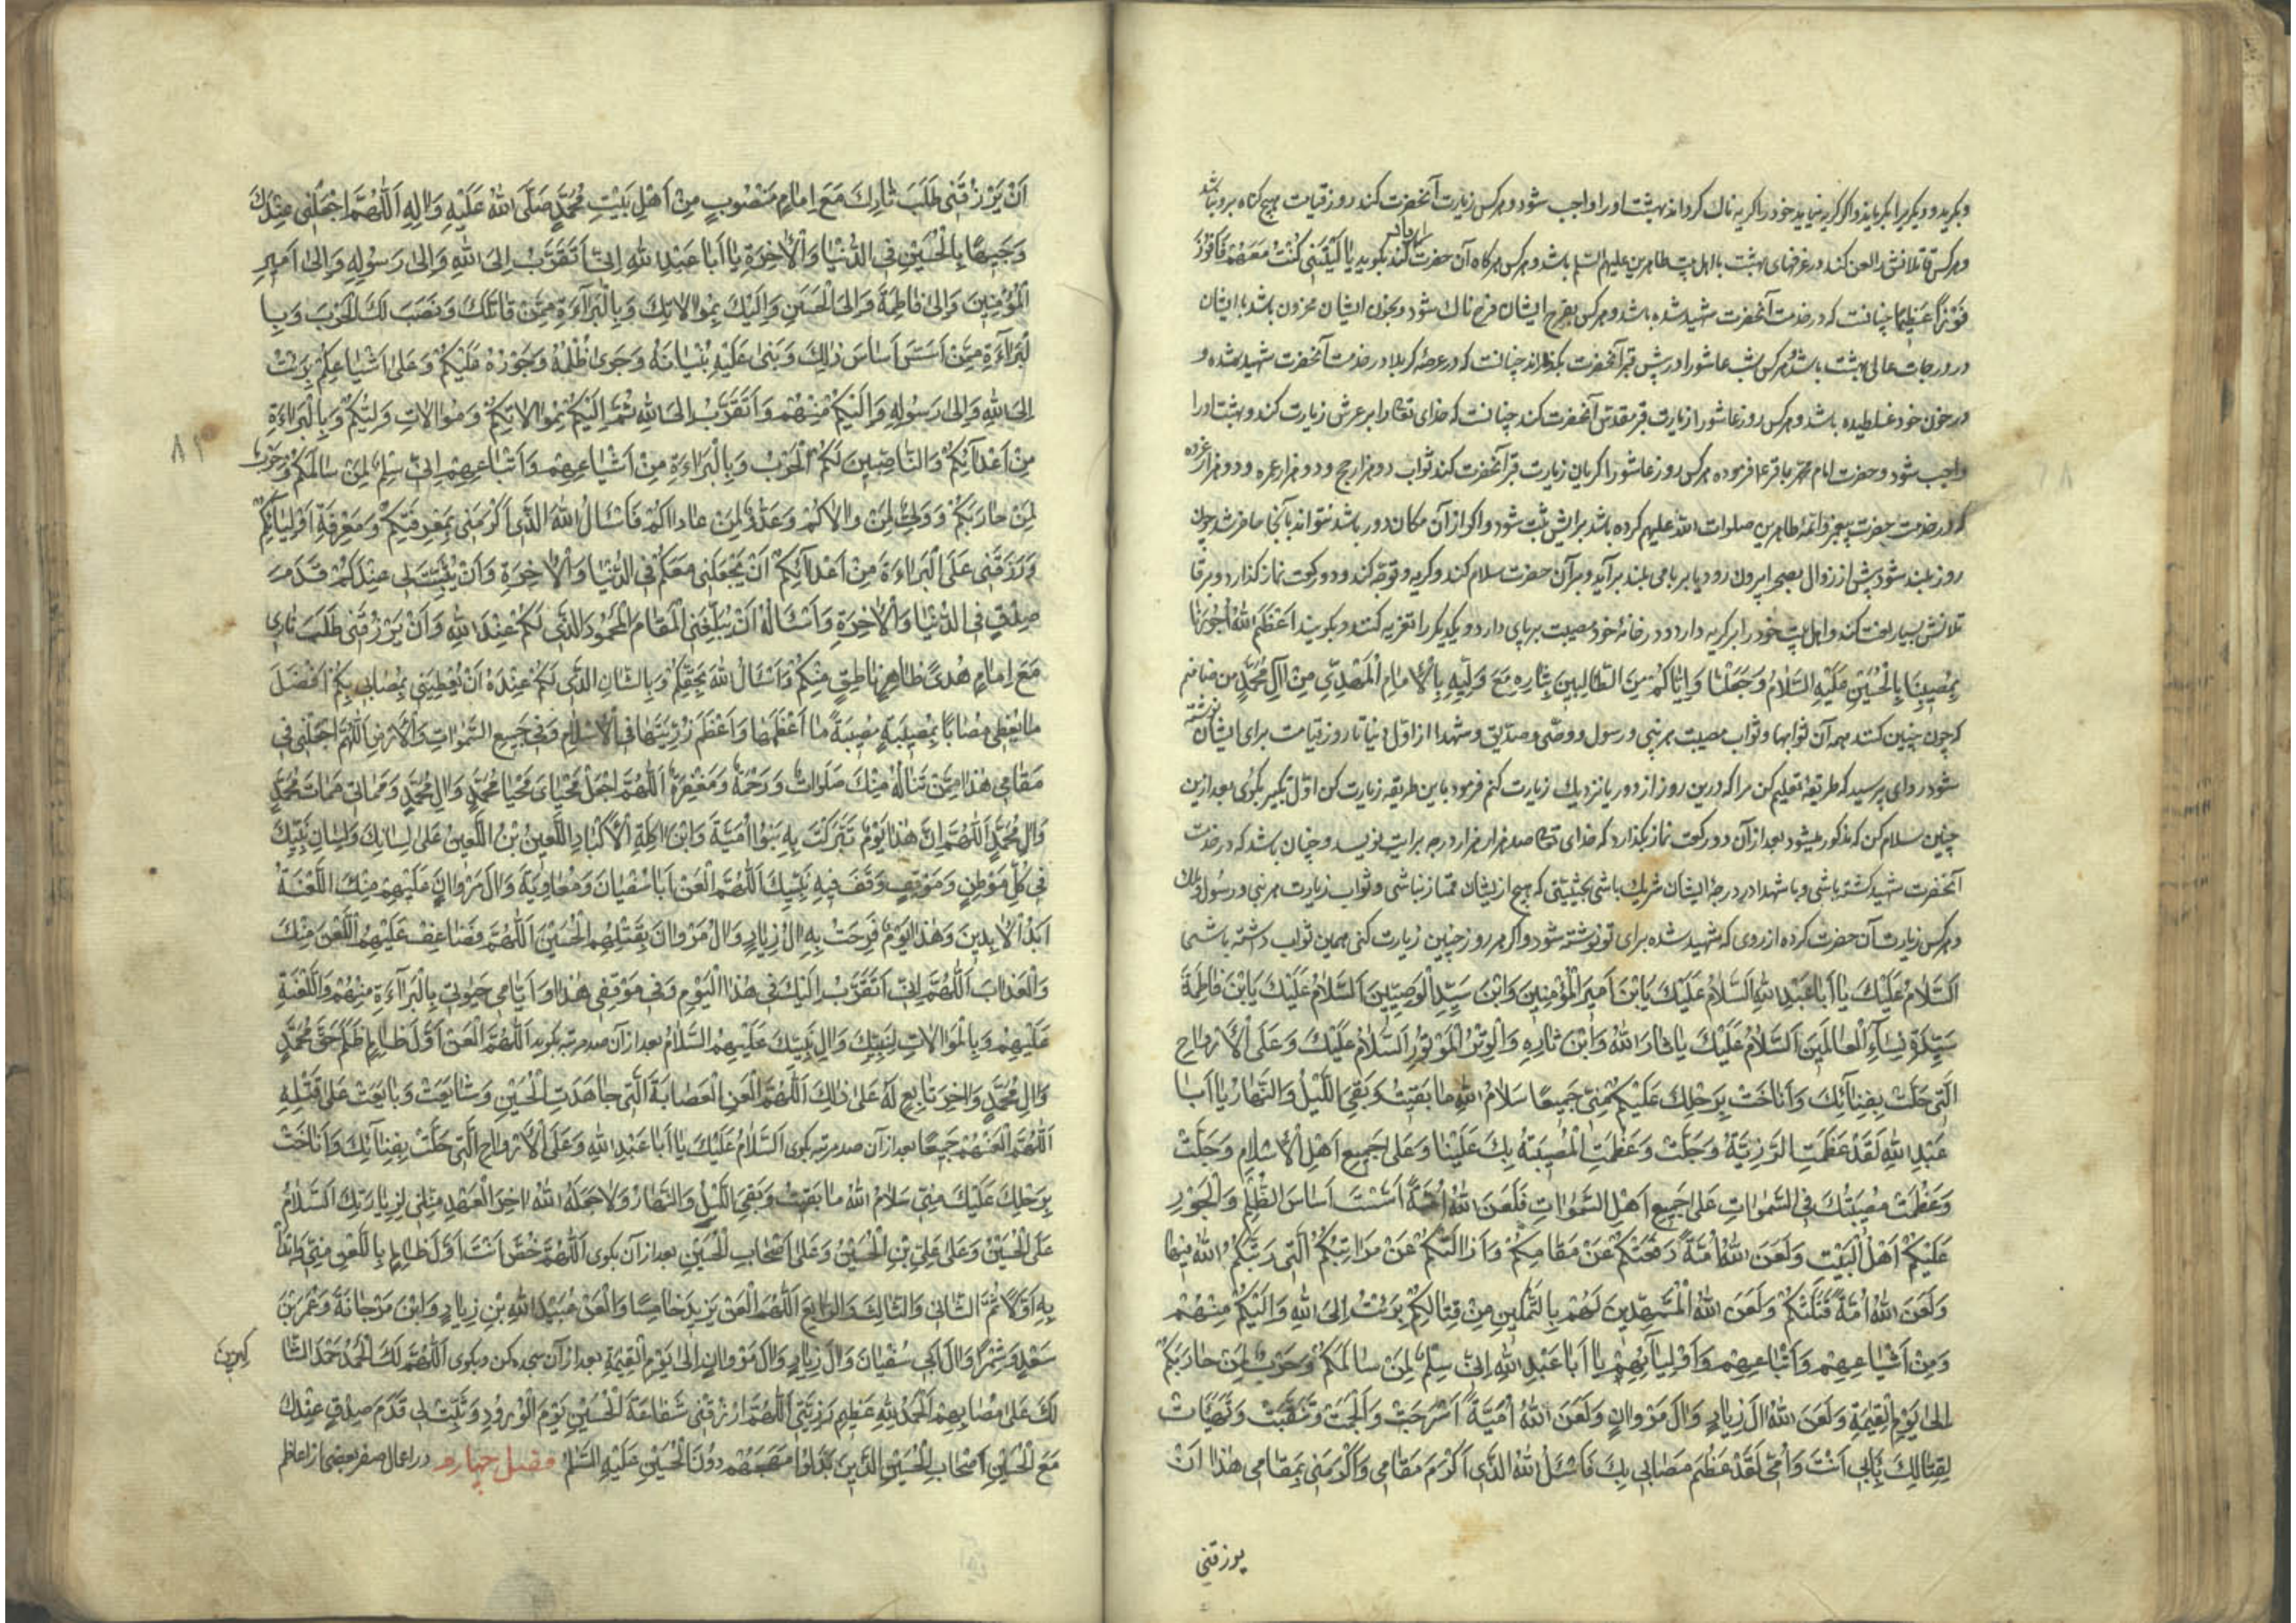 وبگرید و دیگریرا بگریاند و اگر گریه نیاید خود را گریه ناک گرداند بهشت او را واجب شود و هرکس زیارت آنحضرت کند روز قیامت هیچ گناه برو نباشد
و هرکس قاتلانش را لعن کند در غرفهای بهشت با اهل بیت طاهرین علیهم السلم باشد و هرکس هرگاه آن حضرت را یاد کند بگوید یا لَیْتَنی کُنْتُ مَعَهُمْ فَاَفُوزَ
فَوْزاً عَظِیماً چنانست که در خدمت آنحضرت شهید شده باشد و هرکس بفرح ایشان فرح ناک شود و بحزن ایشان محزون باشد با ایشان
در درجات عالی بهشت باشد و هرکس شب عاشورا در پیش قبر آنحضرت بگذراند چنانست که در عرصهٔ کربلا در خدمت آنحضرت شهید شده و
در خون خود غلطیده باشد و هرکس روز عاشورا زیارت قبر مقدس آنحضرت کند چنانست که خدای تعالی را بر عرش زیارت کند و بهشت او را
واجب شود و حضرت امام محمد باقر ع فرموده هرکس روز عاشورا گریان زیارت قبر آنحضرت کند ثواب دو هزار حج و دو هزار عمره و دو هزار غزوه
که در خدمت حضرت پیغمبر و ائمه طاهرین صلوات الله علیهم کرده باشد برایش ثبت شود و اگر از آن مکان دور باشد نتواند بآنجا حاضر شد چون
روز بلند شود پیش از زوال بصحرا بیرون رود یا بر بامی بلند برآید و بر آن حضرت سلام کند و گریه و نوحه کند و دو رکعت نماز گذارد و بر قا
تلانش بسیار لعنت کند و اهل بیت خود را بر گریه دارد و در خانهٔ خود مصیبت برپای دارد و یکدیگر را تعزیه کنند و بگویند اَعْظَمَ اللهُ اُجُورَنا
بِمُصِیبَتِنا بِالْحُسَیْنِ عَلَیْهِ السَّلامُ وَجَعَلَنا وَاِیّاکُمْ مِنَ الطّالِبینَ بِثارِهِ مَعَ وَلِیِّهِ الْاِمامِ الْمَهْدِیِّ مِنْ آلِ مُحَمَّدٍ من ضامنم
که چون چنین کنند همه آن ثوابها و ثواب مصیبت هر نبی و رسول و وصی و صدیق و شهدا از اول دنیا تا روز قیامت برای ایشان نوشته
شود راوی پرسید که طریقهٔ تعلیم کن مرا که درین روز از دور یا نزدیک زیارت کنم فرمود باین طریقه زیارت کن اول تکبیر بگوی بعد ازین
چنین سلام کن که مذکور میشود بعد از آن دو رکعت نماز بگذارد که خدای تعالی صد هزار هزار درجه برایت نویسد و چنان باشد که در خدمت
آنحضرت شهید گشته باشی و با شهدا در درجهٔ ایشان شریک باشی بحیثیتی که هیچ از ایشان ممتاز نباشی و ثواب زیارت هر نبی و رسول
و هرکس زیارت آن حضرت کرده از روزی که شهید شده برای تو نوشته شود و اگر هر روز چنین زیارت کنی همین ثواب داشته باشی
اَلسَّلامُ عَلَیْكَ یا اَبا عَبْدِ اللهِ اَلسَّلامُ عَلَیْكَ یَابْنَ اَمیرِ الْمُؤْمِنینَ وَابْنَ سَیِّدِ الْوَصِیّینَ اَلسَّلامُ عَلَیْكَ یَابْنَ فاطِمَةَ
سَیِّدَةِ نِسآءِ الْعالَمینَ اَلسَّلامُ عَلَیْكَ یا ثارَ اللهِ وَابْنَ ثارِهِ وَالْوِتْرَ الْمَوْتُورَ اَلسَّلامُ عَلَیْكَ وَعَلَی الْاَرْواحِ
الَّتی حَلَّتْ بِفِنآئِكَ وَاَناخَتْ بِرَحْلِكَ عَلَیْکُمْ مِنّی جَمیعًا سَلامُ اللهِ ما بَقیتُ وَبَقِیَ اللَّیْلُ وَالنَّهارُ یا اَبا
عَبْدِ اللهِ لَقَدْ عَظُمَتِ الرَّزِیَّةُ وَجَلَّتْ وَعَظُمَتِ الْمُصیبَةُ بِكَ عَلَیْنا وَعَلی جَمیعِ اَهْلِ الْاِسْلامِ وَجَلَّتْ
وَعَظُمَتْ مُصیبَتُكَ فِی السَّمواتِ عَلی جَمیعِ اَهْلِ السَّمواتِ فَلَعَنَ اللهُ اُمَّةً اَسَّسَتْ اَساسَ الظُّلْمِ وَالْجَوْرِ
عَلَیْکُمْ اَهْلَ الْبَیْتِ وَلَعَنَ اللهُ اُمَّةً دَفَعَتْکُمْ عَنْ مَقامِکُمْ وَاَزالَتْکُمْ عَنْ مَراتِبِکُمُ الَّتی رَتَّبَکُمُ اللهُ فیها
وَلَعَنَ اللهُ اُمَّةً قَتَلَتْکُمْ وَلَعَنَ اللهُ الْمُمَهِّدینَ لَهُمْ بِالتَّمْکینِ مِنْ قِتالِکُمْ بَرِئْتُ اِلَی اللهِ وَاِلَیْکُمْ مِنْهُمْ
وَمِنْ اَشْیاعِهِمْ وَاَتْباعِهِمْ وَاَوْلِیآئِهِمْ یا اَبا عَبْدِ اللهِ اِنّی سِلْمٌ لِمَنْ سالَمَکُمْ وَحَرْبٌ لِمَنْ حارَبَکُمْ
اِلی یَوْمِ الْقِیمَةِ وَلَعَنَ اللهُ الَ زِیادٍ وَالَ مَرْوانٍ وَلَعَنَ اللهُ اُمَیَّةً اَسْرَجَتْ وَاَلْجَمَتْ وَتَنَقَّبَتْ وَتَهَیَّاتْ
لِقِتالِكَ بِاَبی اَنْتَ وَاُمّی لَقَدْ عَظُمَ مُصابی بِكَ فَاَسْئَلُ اللهَ الَّذی اَکْرَمَ مَقامی وَاَکْرَمَنی بِمَقامی هذا اَنْ
یرزقنی
اَنْ یَرْزُقَنی طَلَبَ ثارِكَ مَعَ اِمامٍ مَنْصُوبٍ مِنْ اَهْلِ بَیْتِ مُحَمَّدٍ صَلَّی اللهُ عَلَیْهِ وَالِهِ اَللّهُمَّ اجْعَلْنی عِنْدَكَ
وَجیهًا بِالْحُسَیْنِ فِی الدُّنْیا وَالْاخِرَةِ یا اَبا عَبْدِ اللهِ اِنّی اَتَقَرَّبُ اِلَی اللهِ وَاِلی رَسُولِهِ وَاِلی اَمیرِ
الْمُؤْمِنینَ وَاِلی فاطِمَةَ وَاِلَی الْحَسَنِ وَاِلَیْكَ بِمُوالاتِكَ وَبِالْبَرآءَةِ مِمَّنْ قاتَلَكَ وَنَصَبَ لَكَ الْحَرْبَ وَبِا
لْبَرآءَةِ مِمَّنْ اَسَّسَ اَساسَ ذلِكَ وَبَنی عَلَیْهِ بُنْیانَهُ وَجَری ظُلْمُهُ وَجَوْرُهُ عَلَیْکُمْ وَعَلی اَشْیاعِکُمْ بَرِئْتُ
اِلَی اللهِ وَاِلی رَسُولِهِ وَاِلَیْکُمْ مِنْهُمْ وَاَتَقَرَّبُ اِلَی اللهِ ثُمَّ اِلَیْکُمْ بِمُوالاتِکُمْ وَمُوالاتِ وَلِیِّکُمْ وَبِالْبَراءَةِ
مِنْ اَعْدآئِکُمْ وَالنّاصِبینَ لَکُمُ الْحَرْبَ وَبِالْبَراءَةِ مِنْ اَشْیاعِهِمْ وَاَتْباعِهِمْ اِنّی سِلْمٌ لِمَنْ سالَمَکُمْ وَحَرْبٌ
لِمَنْ حارَبَکُمْ وَوَلِیٌّ لِمَنْ والاکُمْ وَعَدُوٌّ لِمَنْ عاداکُمْ فَاَسْاَلُ اللهَ الَّذی اَکْرَمَنی بِمَعْرِفَتِکُمْ وَمَعْرِفَةِ اَوْلِیآئِکُمْ
وَرَزَقَنی عَلَی الْبَراءَةَ مِنْ اَعْدآئِکُمْ اَنْ یَجْعَلَنی مَعَکُمْ فِی الدُّنْیا وَالْاخِرَةِ وَاَنْ یُثَبِّتَ لی عِنْدَکُمْ قَدَمَ
صِدْقٍ فِی الدُّنْیا وَالْاخِرَةِ وَاَسْئَالُهُ اَنْ یُبَلِّغَنِی الْمَقامَ الْمَحْمُودَ الَّذی لَکُمْ عِنْدَ اللهِ وَاَنْ یَرْزُقَنی طَلَبَ ثاری
مَعَ اِمامٍ هُدیً ظاهِرٍ ناطِقٍ مِنْکُمْ وَاَسْئَالُ اللهَ بِحَقِّکُمْ وَبِالشّانِ الَّذی لَکُمْ عِنْدَهُ اَنْ یُعْطِیَنی بِمُصابی بِکُمْ اَفْضَلَ
ما یُعْطی مُصابًا بِمُصیبَةٍ مُصیبَةً ما اَعْظَمَها وَاَعْظَمَ رَزِیَّتَها فِی الْاِسْلامِ وَفی جَمیعِ السَّمواتِ وَالْاَرْضِ اَللّهُمَّ اجْعَلْنی فی
مَقامی هذا مِمَّنْ تَنالُهُ مِنْكَ صَلَواتٌ وَرَحْمَةٌ وَمَغْفِرَةٌ اَللّهُمَّ اجْعَلْ مَحْیایَ مَحْیا مُحَمَّدٍ وَالِ مُحَمَّدٍ وَمَماتی مَماتَ مُحَمَّدٍ
وَالِ مُحَمَّدٍ اَللّهُمَّ اِنَّ هذا یَوْمٌ تَبَرَّکَتْ بِهِ بَنُوا اُمَیَّةَ وَابْنُ اکِلَةِ الْاَکْبادِ اللَّعینُ بْنُ اللَّعینِ عَلی لِسانِكَ وَلِسانِ نَبِیِّكَ
فی کُلِّ مَوْطِنٍ وَمَوْقِفٍ وَقَفَ فیهِ نَبِیُّكَ اَللّهُمَّ الْعَنْ اَبا سُفْیانَ وَمُعاوِیَةَ وَالَ مَرْوانٍ عَلَیْهِمْ مِنْكَ اللَّعْنَةُ
اَبَدَ الْابِدینَ وَهذا یَوْمٌ فَرِحَتْ بِهِ الُ زِیادٍ وَالُ مَرْوانَ بِقَتْلِهِمُ الْحُسَیْنَ اَللّهُمَّ فَضاعِفْ عَلَیْهِمُ اللَّعْنَ مِنْكَ
وَالْعَذابَ اَللّهُمَّ اِنّی اَتَقَرَّبُ اِلَیْكَ فی هذَا الْیَوْمِ وَفی مَوْقِفی هذا وَاَیّامِ حَیوتی بِالْبَرآءَةِ مِنْهُمْ وَاللَّعْنَةِ
عَلَیْهِمْ وَبِالْمُوالاتِ لِنَبِیِّكَ وَالِ نَبِیِّكَ عَلَیْهِمُ السَّلامُ بعد از آن صد مرتبه بگوید اَللّهُمَّ الْعَنْ اَوَّلَ ظالِمٍ ظَلَمَ حَقَّ مُحَمَّدٍ
وَالِ مُحَمَّدٍ وَاخِرَ تابِعٍ لَهُ عَلی ذلِكَ اَللّهُمَّ الْعَنِ الْعِصابَةَ الَّتی جاهَدَتِ الْحُسَیْنِ وَشایَعَتْ وَبایَعَتْ عَلی قَتْلِهِ
اَللّهُمَّ الْعَنْهُمْ جَمیعًا بعد از آن صد مرتبه بگوی اَلسَّلامُ عَلَیْكَ یا اَبا عَبْدِ اللهِ وَعَلَی الْاَرْواحِ الَّتی حَلَّتْ بِفِنآئِكَ وَاَناخَتْ
بِرَحْلِكَ عَلَیْكَ مِنّی سَلامُ اللهِ ما بَقیتُ وَبَقِیَ اللَّیْلُ وَالنَّهارُ وَلا جَعَلَهُ اللهُ اخِرَ الْعَهْدِ مِنّی لِزِیارَتِكَ اَلسَّلامُ
عَلَی الْحُسَیْنِ وَعَلی عَلِیِّ بْنِ الْحُسَیْنِ وَعَلی اَصْحابِ الْحُسَیْنِ بعد از آن بگوی اَللّهُمَّ خُصَّ اَنْتَ اَوَّلَ ظالِمٍ بِاللَّعْنِ مِنّی وَابْدَاْ
بِهِ اَوَّلًا ثُمَّ الثّانی وَالثّالِثَ وَالرّابِعَ اَللّهُمَّ الْعَنْ یَزیدَ خامِسًا وَالْعَنْ عُبَیْدَ اللهِ بْنِ زِیادٍ وَابْنَ مَرْجانَةَ وَعُمَرَ بْنَ
سَعْدٍ وَشِمْرًا وَالَ اَبی سُفْیانَ وَالَ زِیادٍ وَالَ مَرْوانٍ اِلی یَوْمِ الْقِیمَةِ بعد از آن سجده کن و بگوی اَللّهُمَّ لَكَ الْحَمْدُ حَمْدَ الشّا
کرین
لَكَ عَلی مُصابِهِمْ اَلْحَمْدُ لِلّهِ عَظیمِ رَزِیَّتی اَللّهُمَّ ارْزُقْنی شَفاعَةَ الْحُسَیْنِ یَوْمَ الْوُرُودِ وَثَبِّتْ لی قَدَمَ صِدْقٍ عِنْدَكَ
مَعَ الْحُسَیْنِ اَصْحابِ الْحُسَیْنِ الَّذینَ بَذَلُوا مُهَجَهُمْ دُونَ الْحُسَیْنِ عَلَیْهِ السَّلامُ فصل چهارم در اعمال صفر بعضی از اعاظم